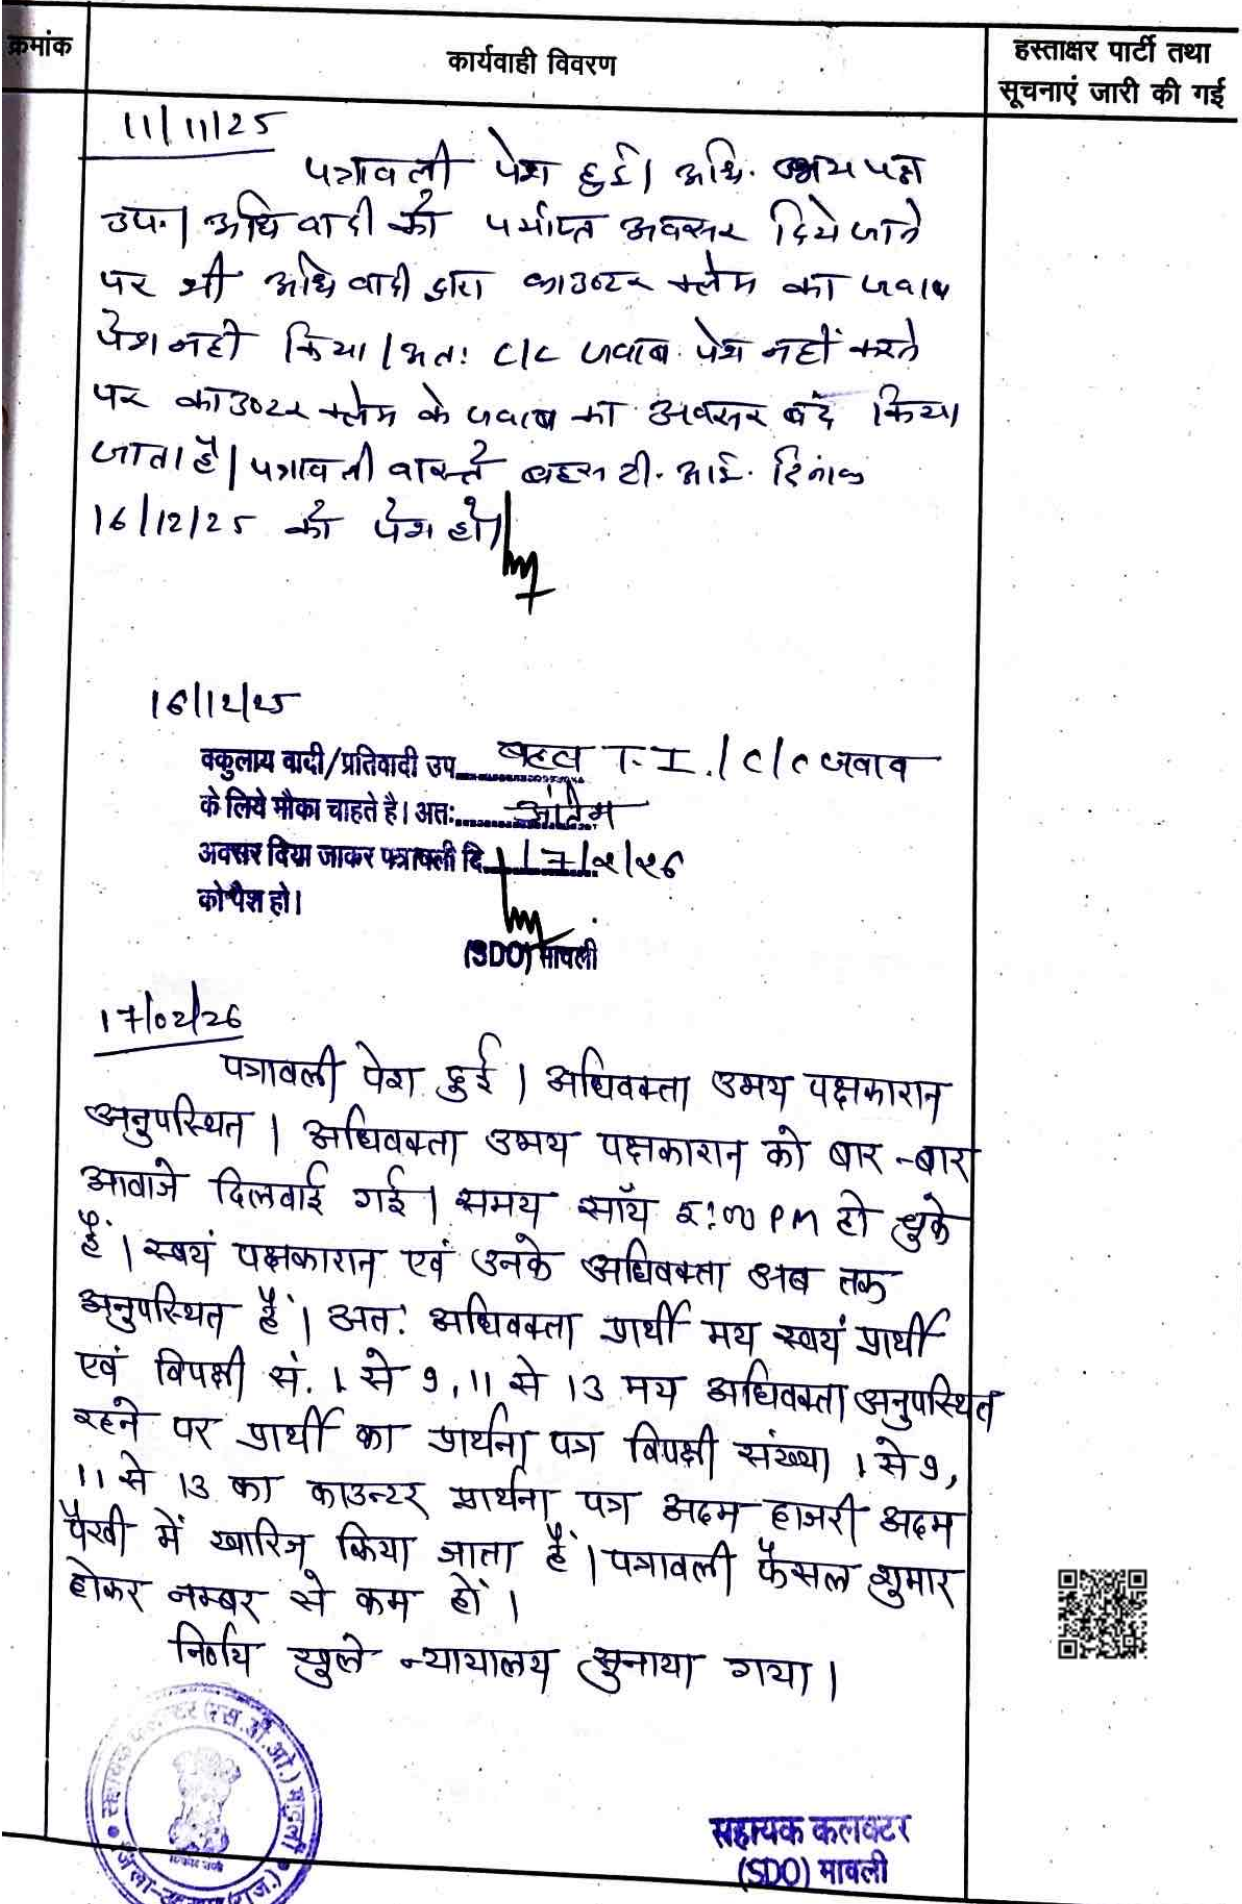 क्रमांक
कार्यवाही विवरण
हस्ताक्षर पार्टी तथा
सूचनाएं जारी की गई
11/11/25
पत्रावली पेश हुई। अधि. उभय पक्ष
उप.। अधि वादी को पर्याप्त अवसर दिये जाने
पर भी अधि वादी द्वारा काउण्टर क्लेम का जवाब
पेश नही किया। अतः C/C जवाब पेश नहीं करने
पर काउण्टर क्लेम के जवाब का अवसर बंद किया
जाता है। पत्रावली वास्ते बहस टी. आई. दिनांक
16/12/25 को पेश हो।
16/12/25
वकुलाय वादी/प्रतिवादी उप. बहस T.I./C/C जवाब
के लिये मौका चाहते है। अतः अंतिम
अवसर दिया जाकर पत्रावली दि. 17/2/26
को पेश हो।
(SDO) मावली
17/02/26
पत्रावली पेश हुई। अधिवक्ता उभय पक्षकारान
अनुपस्थित। अधिवक्ता उभय पक्षकारान को बार-बार
आवाजे दिलवाई गई। समय सॉय 5:00 PM हो चुके
हैं। स्वयं पक्षकारान एवं उनके अधिवक्ता अब तक
अनुपस्थित हैं। अतः अधिवक्ता प्रार्थी मय स्वयं प्रार्थी
एवं विपक्षी सं. 1 से 9, 11 से 13 मय अधिवक्ता अनुपस्थित
रहने पर प्रार्थी का प्रार्थना पत्र विपक्षी संख्या 1 से 9,
11 से 13 का काउन्टर प्रार्थना पत्र अदम हाजरी अदम
पैरवी में खारिज किया जाता हैं। पत्रावली फैसल शुमार
होकर नम्बर से कम हों।
निर्णय खुले न्यायालय सुनाया गया।
सहायक कलक्टर
(SDO) मावली